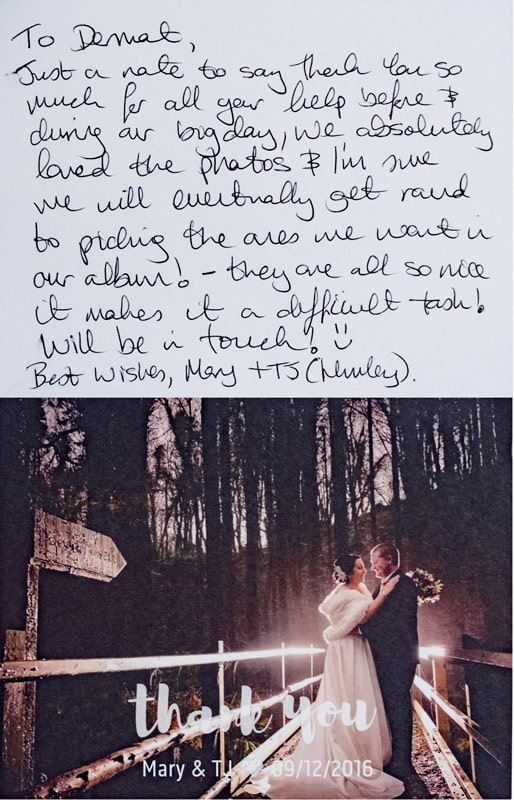 To Dermot,
Just a note to say thank you so
much for all your help before &
during our big day, we absolutely
loved the photos & I'm sure
we will eventually get round
to picking the ones we want in
our album! - they are all so nice
it makes it a difficult task!
Will be in touch!
Best Wishes, Mary + TJ
thank you
Mary & TJ 09/12/2016